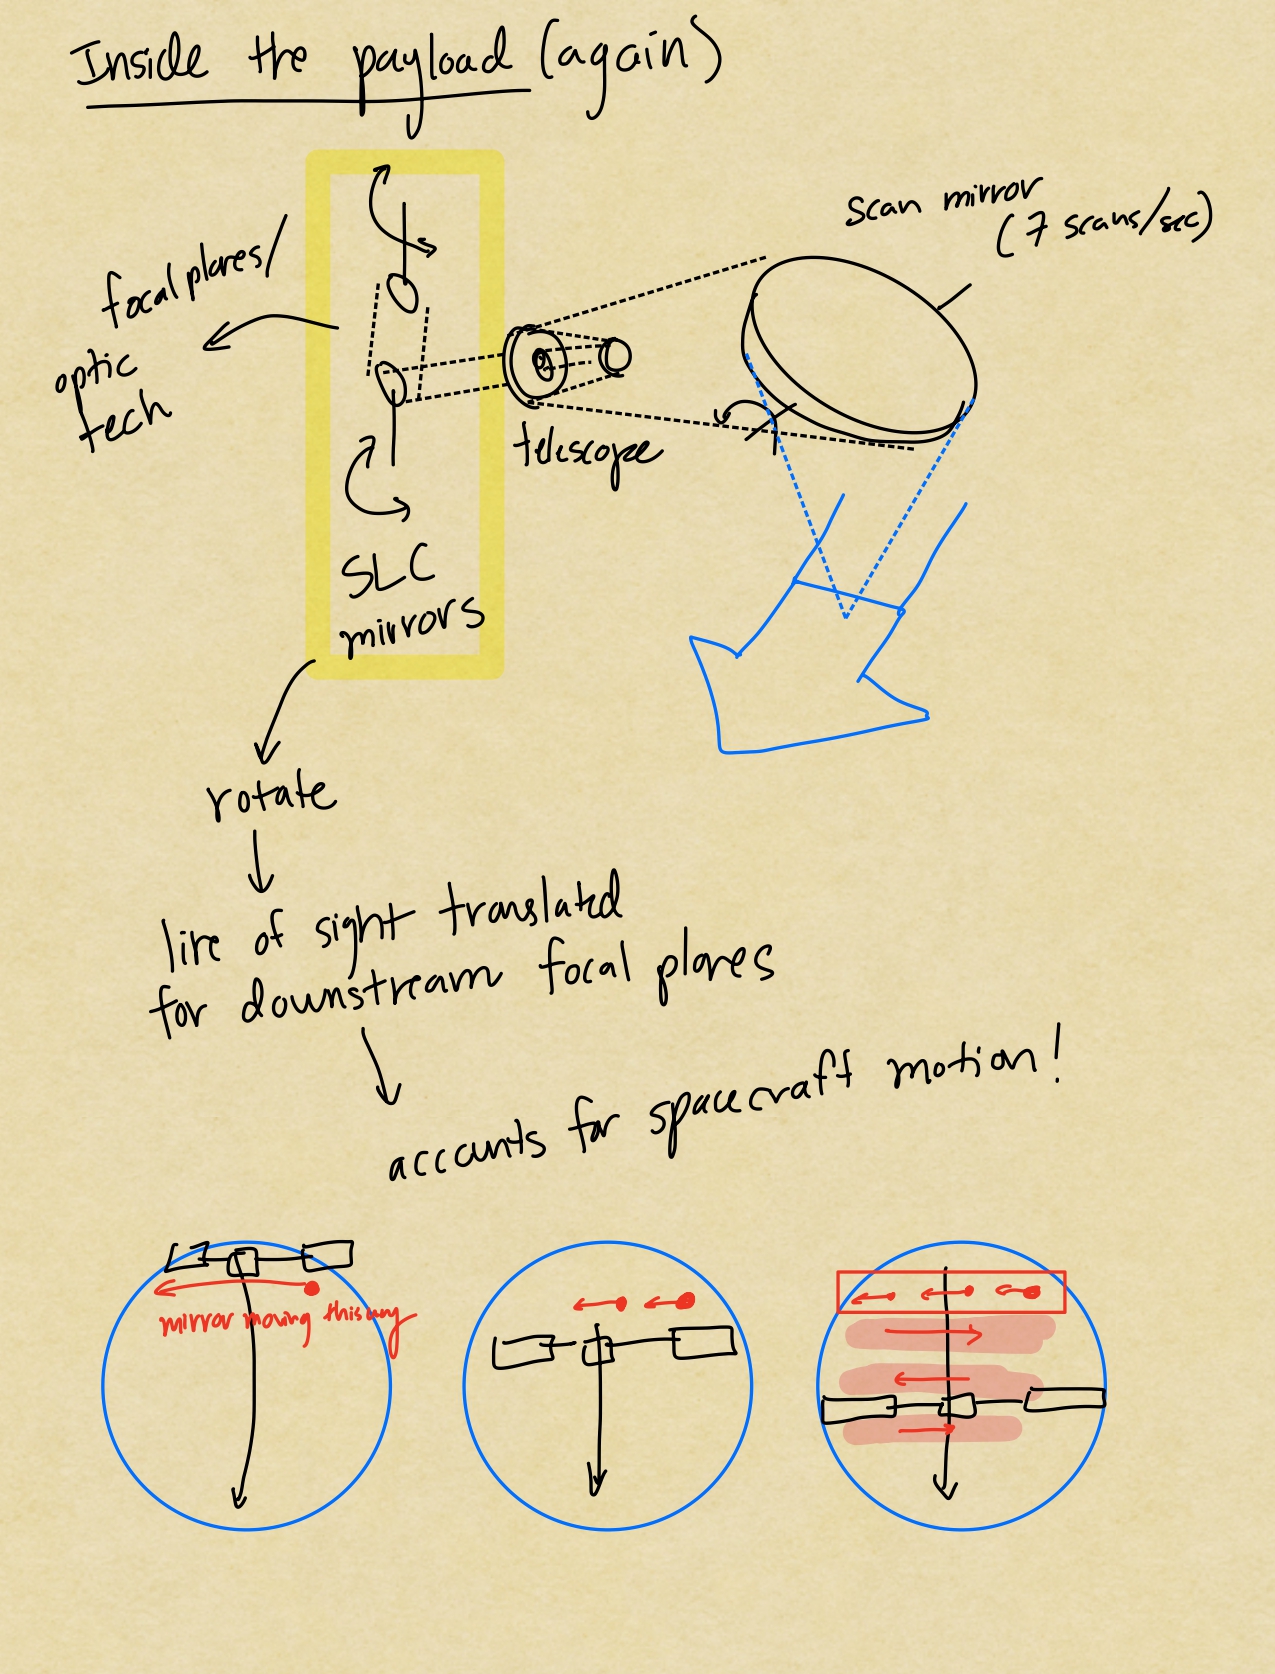 Inside the payload (again)
scan mirror
(7 scans/sec)
focal planes/
optic
tech
telescope
SLC
mirrors
rotate
line of sight translated
for downstream focal planes
accounts for spacecraft motion!
mirror moving this way